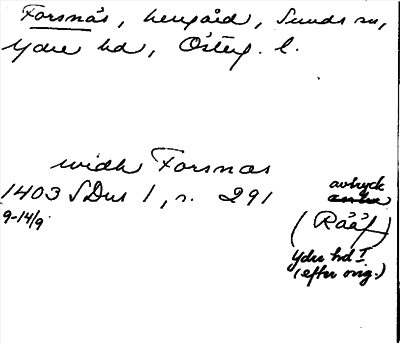 Forsnäs, herrgård, Sunds sn,
Ydre hd, Österg. l.
widh Forsnas
1403 SDns 1, s. 291
9-14/9
avtryck
(Rääf
Ydre hd I
(efter orig.)